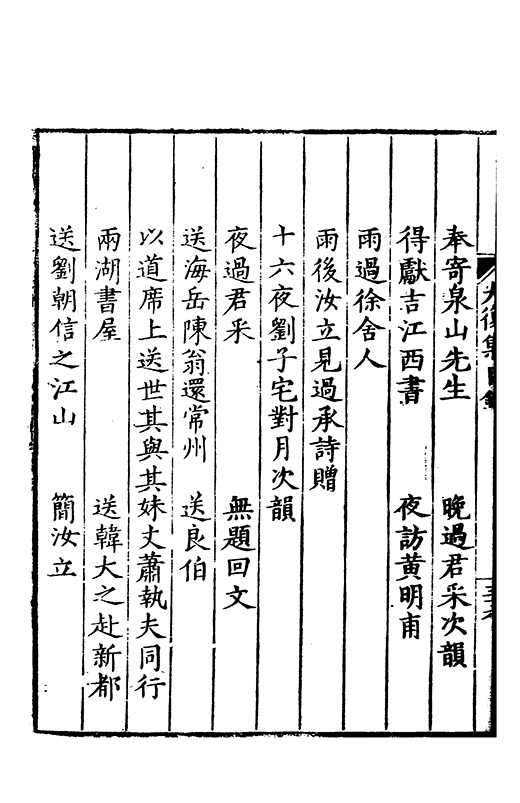 大復集目錄
奉寄泉山先生　晚過君采次韻
得獻吉江西書　夜訪黃明甫
雨過徐舍人
雨後汝立見過承詩贈
十六夜劉子宅對月次韻
夜過君采　無題回文
送海岳陳翁還常州　送良伯
以道席上送世其與其妹丈蕭執夫同行
兩湖書屋　送韓大之赴新都
送劉朝信之江山　簡汝立